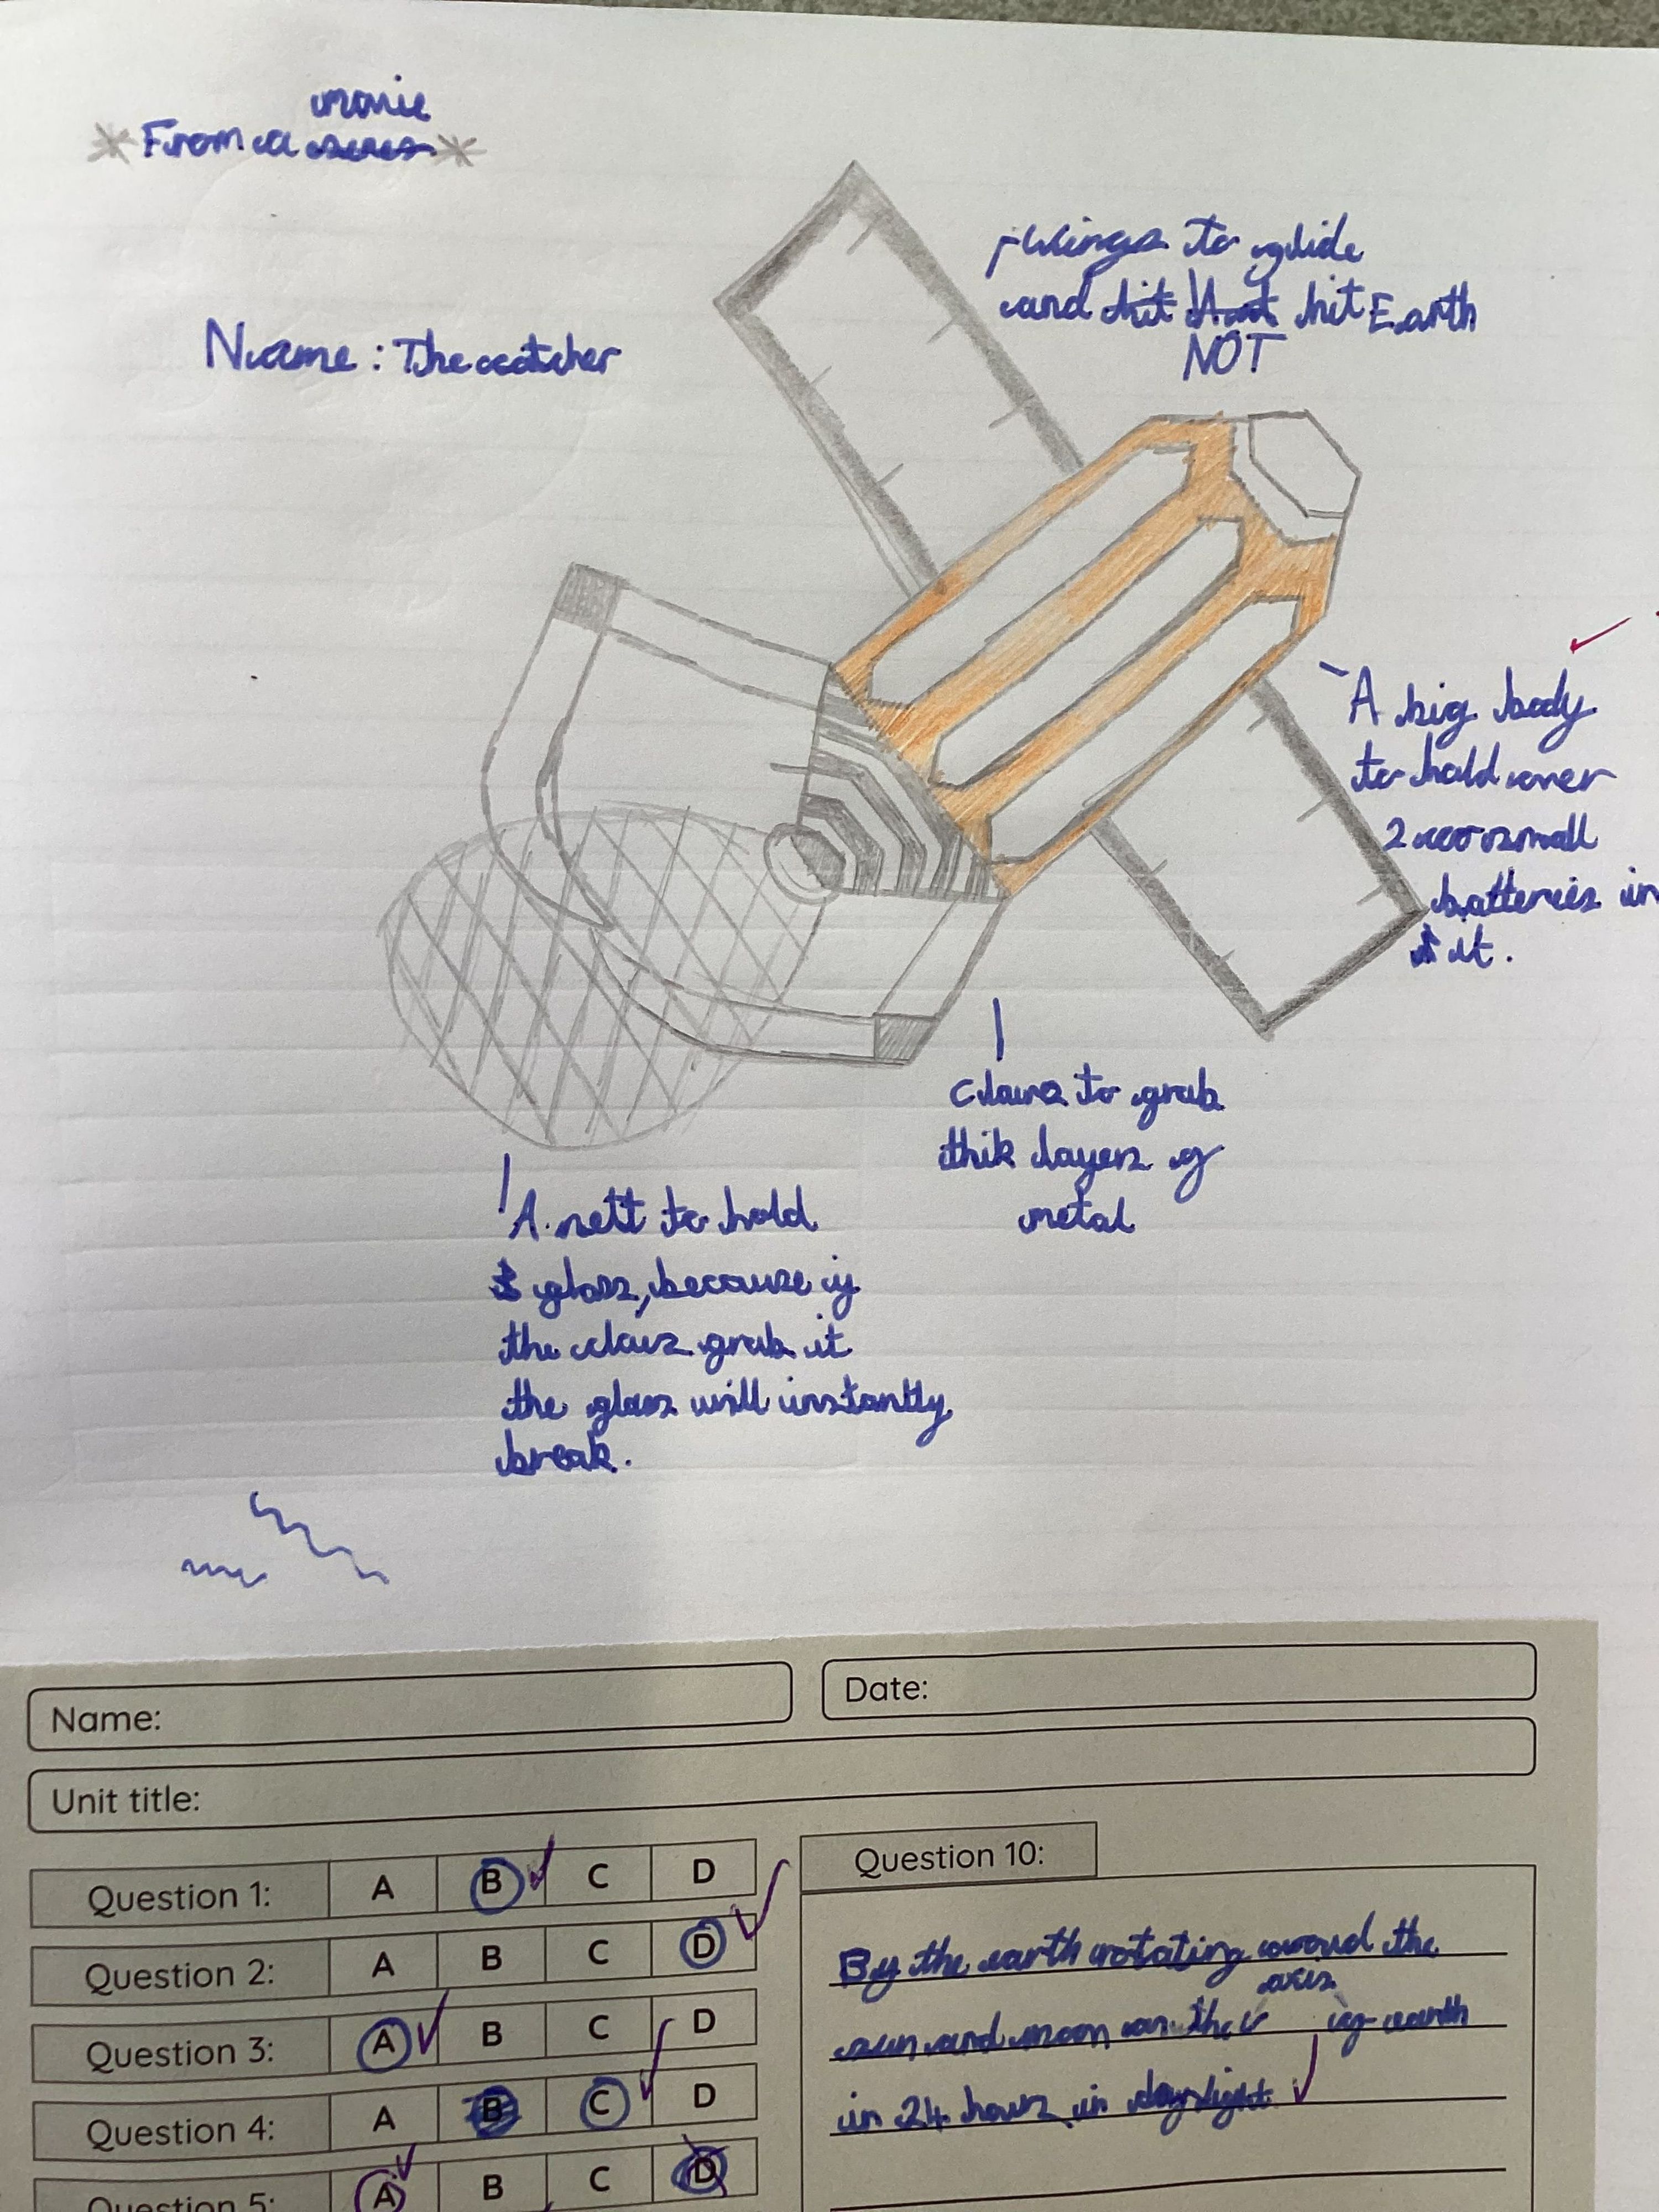 movie
From a series
Name: The catcher
wings to glide
and hit hit Earth
NOT
A big body
to hold over
2 or small
batteries in
it.
Claws to grab
thik layers of
metal
A nett to hold
glass, because if
the claws grab it
the glass will instantly
break.
Name:
Date:
Unit title:
Question 1: A B C D
Question 2: A B C D
Question 3: A B C D
Question 4: A B C D
Question 5: A B C D
Question 10:
By the earth rotating around the
axis
sun and moon on the of earth
in 24 hours in daylight